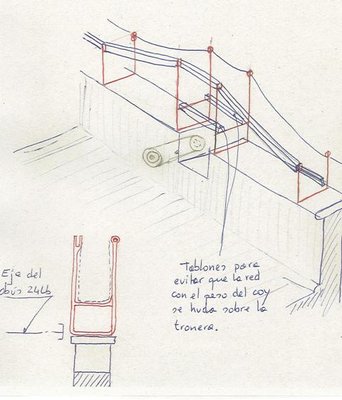 Eje del
obús 24lb
Tablones para
evitar que la red
con el peso del coy
se hunda sobre la
tronera.